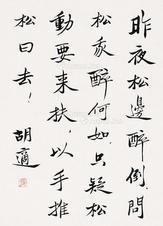 昨夜松邊醉倒問
松我醉何如只疑松
動要来扶以手推
松曰去！
胡適